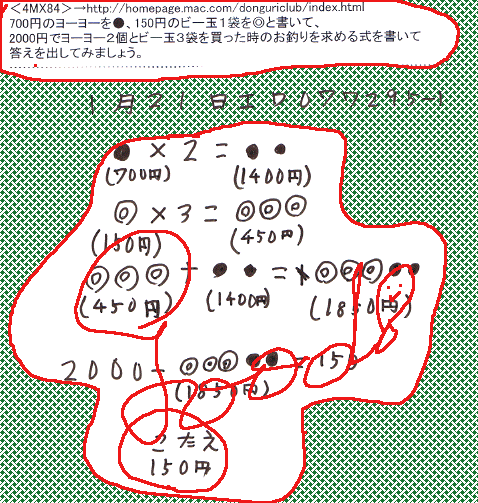 <4MX84>→http://homepage.mac.com/donguriclub/index.html
700円のヨーヨーを●、150円のビー玉1袋を◎と書いて、
2000円でヨーヨー2個とビー玉3袋を買った時のお釣りを求める式を書いて
答えを出してみましょう。
1月21日エDOアワ295-1
● × 2 = ● ●
(700円) (1400円)
◎ × 3 = ◎◎◎
(150円) (450円)
◎◎◎ + ● ● = ◎◎◎●●
(450円) (1400円) (1850円)
2000 - ◎◎◎●● = 150
(1850円)
こたえ
150円